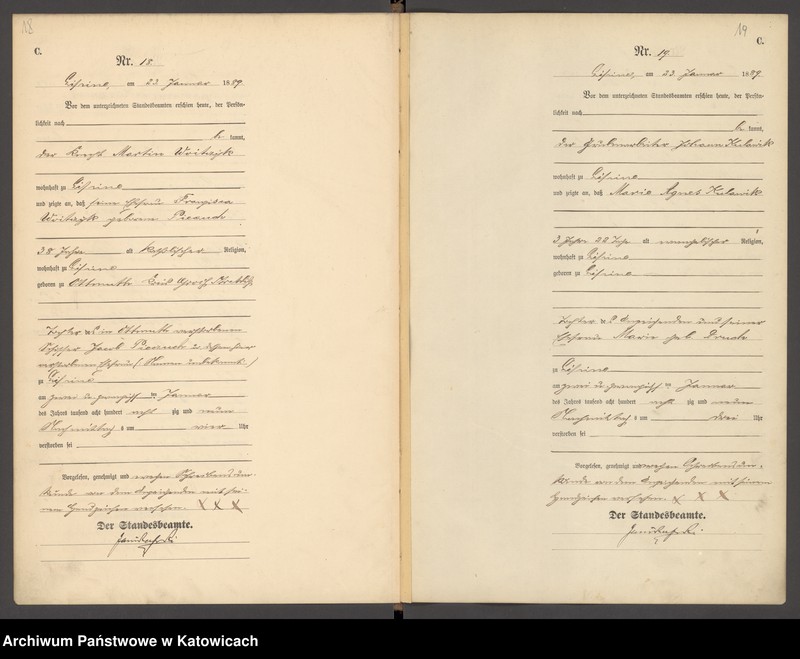 18
C.
Nr. 18
am 23. Januar 1889.
Vor dem unterzeichneten Standesbeamten erschien heute, der Persön-
lichkeit nach
be kannt,
der Knecht Martin Woitazik
wohnhaft zu
und zeigte an, daß seine Ehefrau Franziska
Woitazik geborene
38 Jahre alt katholischer Religion,
wohnhaft zu
geboren zu Ottmuth
Tochter des in Ottmuth verstorbenen
verstorbenen Ehefrau (Namen unbekannt)
zu
am zwei u. zwanzigsten Januar
des Jahres tausend acht hundert acht zig und neun
Nachmittags um vier Uhr
verstorben sei
Vorgelesen, genehmigt und wegen Schreibensun-
kunde von dem Anzeigenden mit sei-
nem Handzeichen versehen. X X X
Der Standesbeamte.
19
C.
Nr. 19.
am 23. Januar 1889.
Vor dem unterzeichneten Standesbeamten erschien heute, der Persön-
lichkeit nach
be kannt,
der Grubenarbeiter Johann Kulawik
wohnhaft zu
und zeigte an, daß Marie Agnes Kulawik
3 Jahre 22 Tage alt evangelischer Religion,
wohnhaft zu
geboren zu
Tochter des Anzeigenden und seiner
Ehefrau Marie geb.
zu
am zwei u. zwanzigsten Januar
des Jahres tausend acht hundert acht zig und neun
Nachmittags um drei Uhr
verstorben sei
Vorgelesen, genehmigt und wegen Schreibensun-
kunde von dem Anzeigenden mit seinem
Handzeichen versehen. X X X
Der Standesbeamte.
Archiwum Państwowe w Katowicach